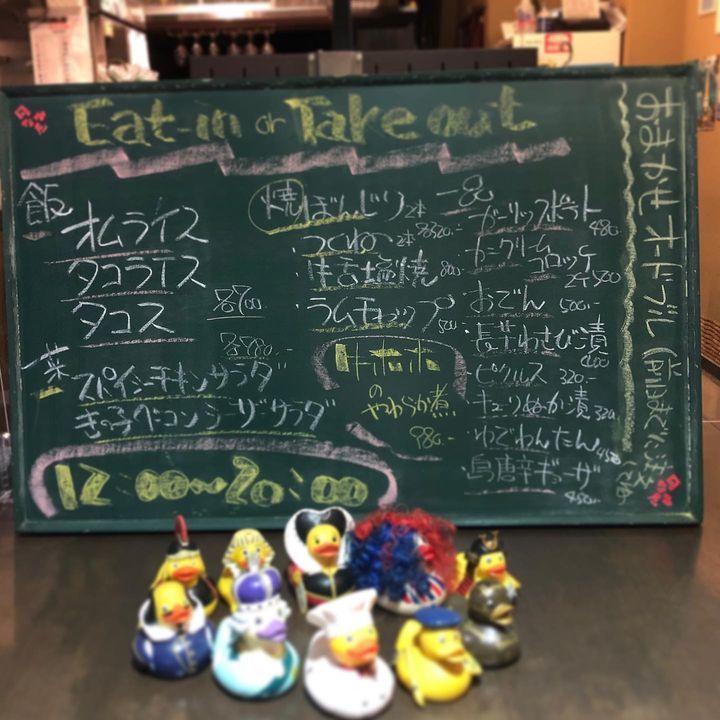 Eat-in or Take out
飯
オムライス
タコライス
タコス
各700
各580.-
菜
スパイシーチキンサラダ
きのこベーコンシーザーサラダ
12:00~20:00
焼
ぼんじり 2本
・つくね 2本 各320.-
・生舌塩焼 800
・ラムチョップ
牛ホホ
のやわらか煮
980.-
一品
・ガーリックポテト 480.-
・カニクリームコロッケ 2ケ500
・おでん 500.-
・長芋わさび漬 400
・ピクルス 320.-
・キューリぬか漬 320
・ゆでわんたん 450
・鳥唐辛ギョーザ 450.-
おまかせオードブル